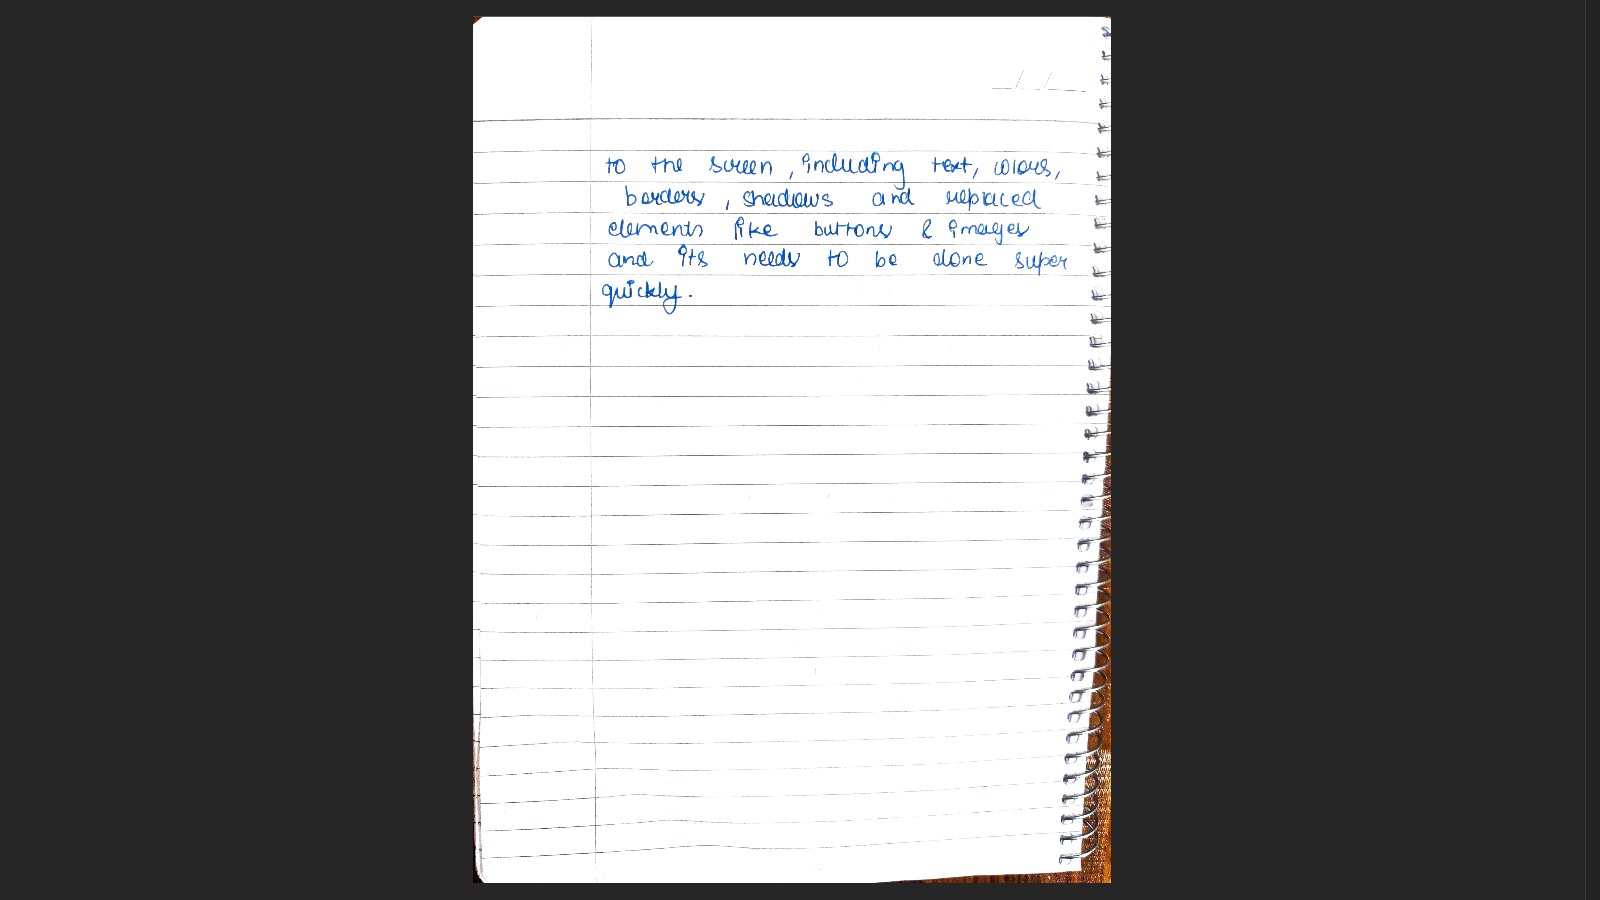 to the screen, including text, colours,
borders, shadows and replaced
elements like buttons & images
and its needs to be done super
quickly.